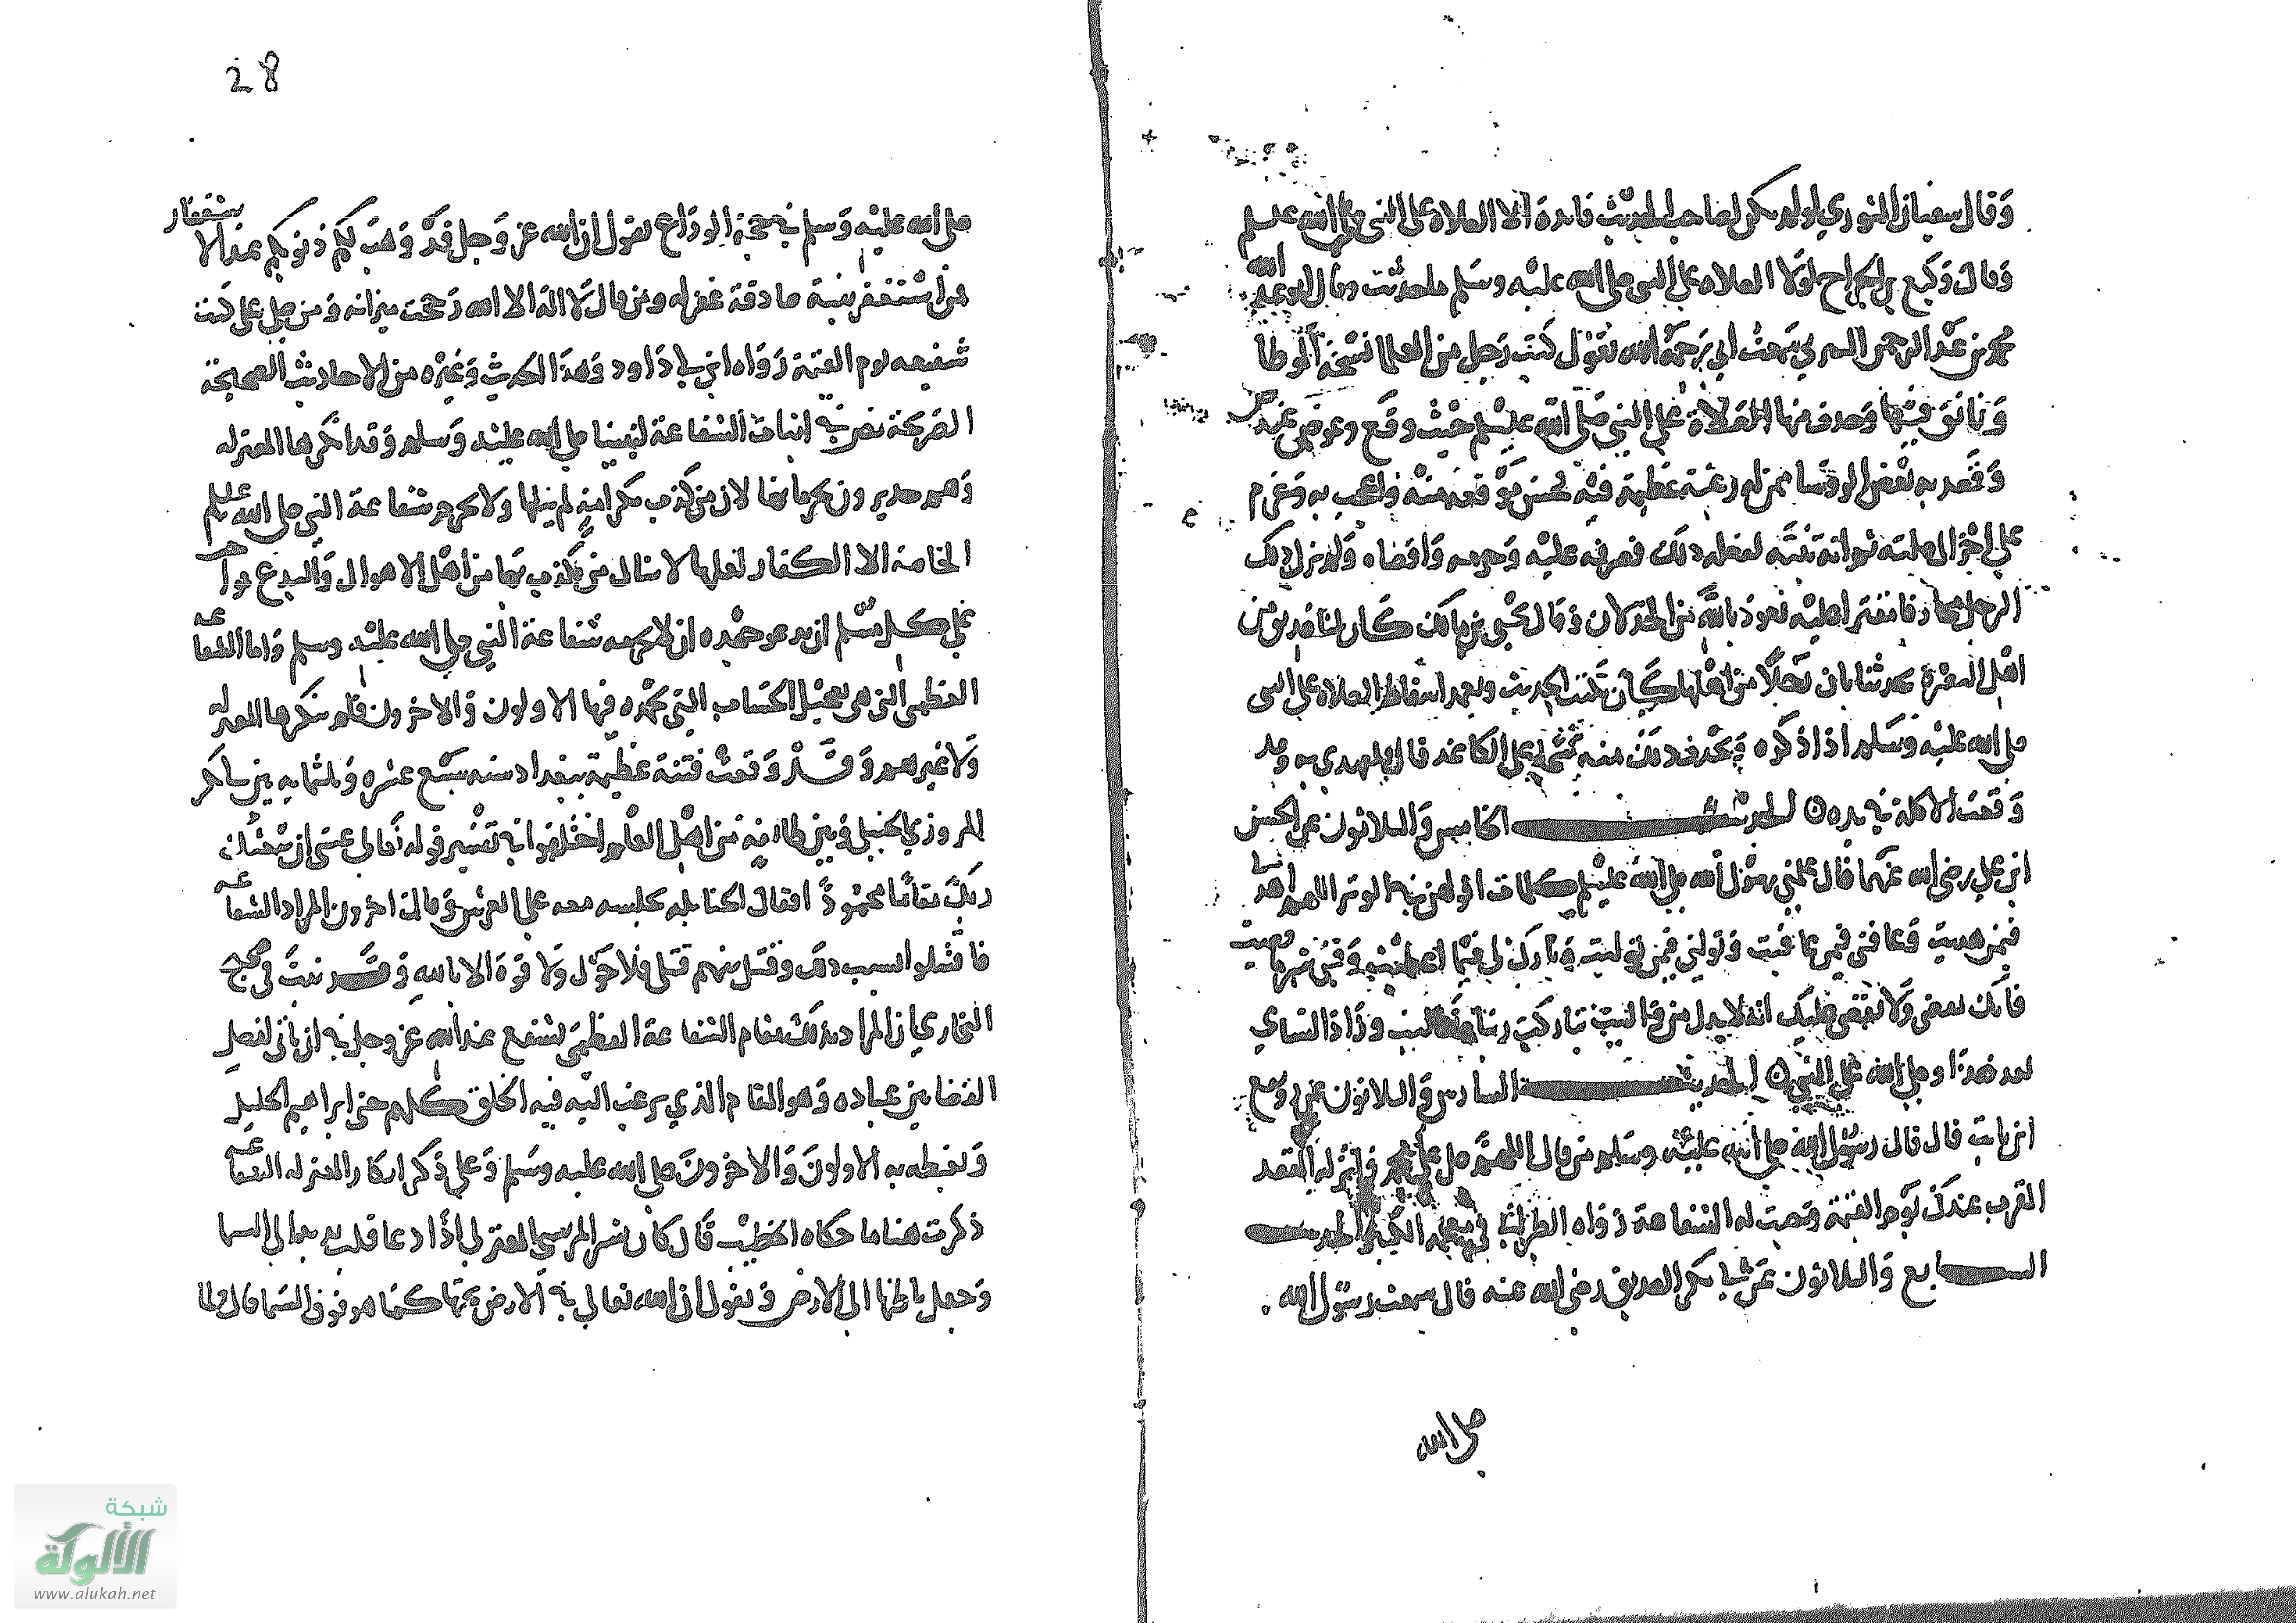 وقال سفيان الثوري لو لم يكن لصاحب الحديث فايدة الا الصلاة على النبي صلى الله عليه وسلم
وقال وكيع بن الجراح لولا الصلاه على النبي صلى الله عليه وسلم ما حدثت وقال ابو عبد الله
محمد بن عبد الرحمن سمعت ابي رحمه الله يقول كتب رجل من العلما نسخة الموطا
وتانق فيها وحذف منها الصلاة على النبي صلى الله عليه وسلم حيث وقع وعوض عنه ص
وقصد به بعض الروسا ممن له رغبة عظيمة فيه فحسن موقعه منه واعجب به وعزم
على اجزال صلته ثم انه تنبه لفعله ذلك فصرفه عليه وحرمه واقصاه ولم يزل ذلك
الرجل مقترا عليه نعوذ بالله من الخذلان وقال يحيى بن مالك كان لنا صديق من
اهل البصرة يحدثنا بان رجلا من اهلها كان يكتب الحديث ويعمد اسقاط الصلاة على النبي
صلى الله عليه وسلم اذا ذكره ويحذف ذلك منه شحا على الكاغد قال فلعهدي به وقد
وقعت الاكلة في يده الحديث الخامس والثلاثون عن الحسن
ابن علي رضي الله عنهما قال علمني رسول الله صلى الله عليه وسلم كلمات اقولهن في الوتر اللهم اهدني
فيمن هديت وعافني فيمن عافيت وتولني فيمن توليت وبارك لي فيما اعطيت وقني شر ما قضيت
فانك تقضي ولا يقضى عليك انه لا يذل من واليت تباركت ربنا وتعاليت وزاد النساي
بعد هذا وصلى الله على النبي الحديث السادس والثلاثون عن رويفع
ابن ثابت قال قال رسول الله صلى الله عليه وسلم من قال اللهم صل على محمد وانزله المقعد
المقرب عندك يوم القيمة وجبت له الشفاعة رواه الطبراني في معجمه الكبير الحديث
السابع والثلاثون عن ابي بكر الصديق رضي الله عنه قال سمعت رسول الله
صلى الله
28
صلى الله عليه وسلم في حجة الوداع يقول ان الله عز وجل قد وهب لكم ذنوبكم عند الاستغفار
فمن استغفر بنية صادقة غفر له ومن قال لا اله الا الله رجحت ميزانه ومن صلى علي كنت
شفيعه يوم القيمة رواه ابن ابي داود وهذا الحديث وغيره من الاحاديث الصحيحة
الصريحة نص في اثبات الشفاعة لنبينا صلى الله عليه وسلم وقد انكرها المعتزله
وهم جديرون بحرمانها لان من كذب بكرامة لم ينلها ولا يحرم شفاعة النبي صلى الله عليه وسلم
الخاصة الا الكفار لعلها لا ينال من يكذب بها من اهل الاهوال والبدع
على كل مسلم ان يدعو جهده ان لا يحرمه شفاعة النبي صلى الله عليه وسلم واما الشفاعة
العظمى التي هي تعجيل الحساب التي يحمده فيها الاولون والاخرون فلم ينكرها المعتزله
ولا غيرهم وقد وقعت فتنة عظيمة ببغداد سنه سبع عشره وثلثمايه بين
المروزي الحنبلي وبين طايفة من اهل العلم اختلفوا في تفسير قوله تعالى عسى ان يبعثك
ربك مقاما محمودا فقال الحنابله يجلسه معه على العرش وقال اخرون المراد الشفاعة
فاقتتلوا بسبب ذلك وقتل بينهم قتلى فلا حول ولا قوة الا بالله وقد ثبت في صحيح
البخاري ان المراد بذلك مقام الشفاعة العظمى يشفع عند الله عز وجل في ان ياتي لفصل
القضا بين عباده وهو المقام الذي يرغب اليه فيه الخلق كلهم حتى ابراهيم الخليل
ويغبطه به الاولون والاخرون صلى الله عليه وسلم وعلى ذكر انكار المعتزله الشفاعة
ذكرت هنا ما حكاه الخطيب قال كان بشر المريسي المعتزلي اذا دعا قلب يديه الى السما
وجعل باطنها الى الارض ويقول ان الله تعالى في الارض تحتها كما هو فوق السما قال
شبكة
الألوكة
www.alukah.net